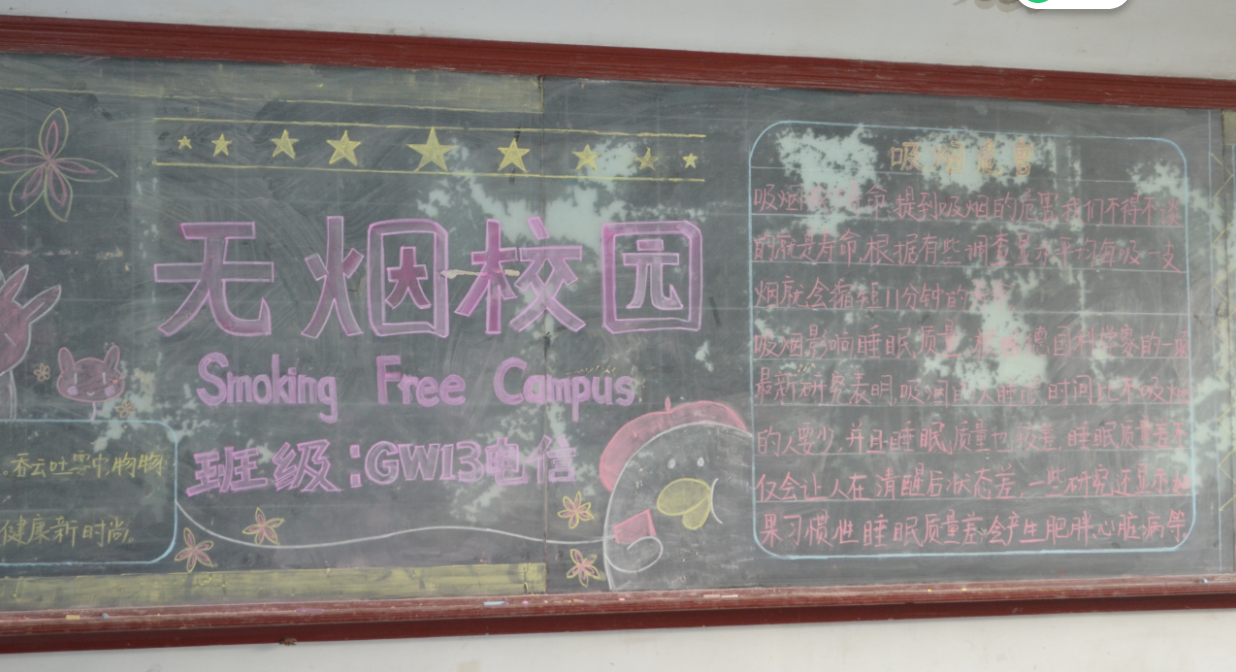 无烟校园
Smoking Free Campus
班级:GW13电信
吞云吐雾
健康新时尚。
吸烟危害
吸烟 寿命,提到吸烟的危害我们不得不谈
的就是寿命,根据有些调查显示平均每吸一支
烟就会缩短11分钟的
吸烟影响睡眠质量, 德国科学家的一项
最新研究表明,吸烟的人睡眠时间比不吸烟
的人要少,并且睡眠质量也较差,睡眠质量差不
仅会让人在清醒后状态差,一些研究还显示如
果习惯性睡眠质量差会产生肥胖心脏病等